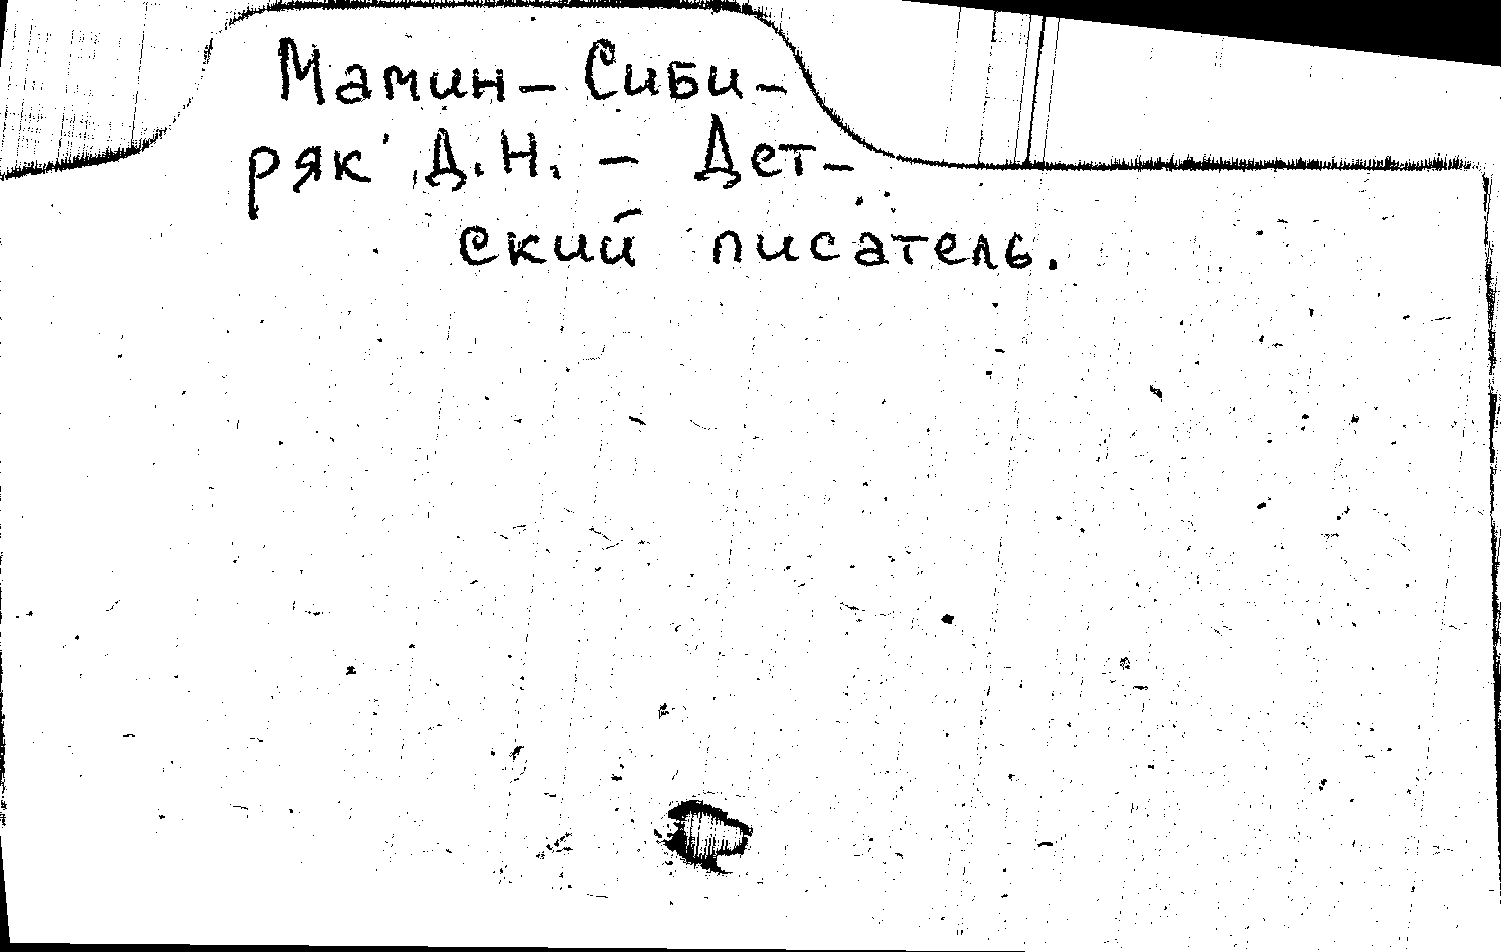 Мамин-Сиби-
ряк Д.Н. - Дет-
ский писатель.